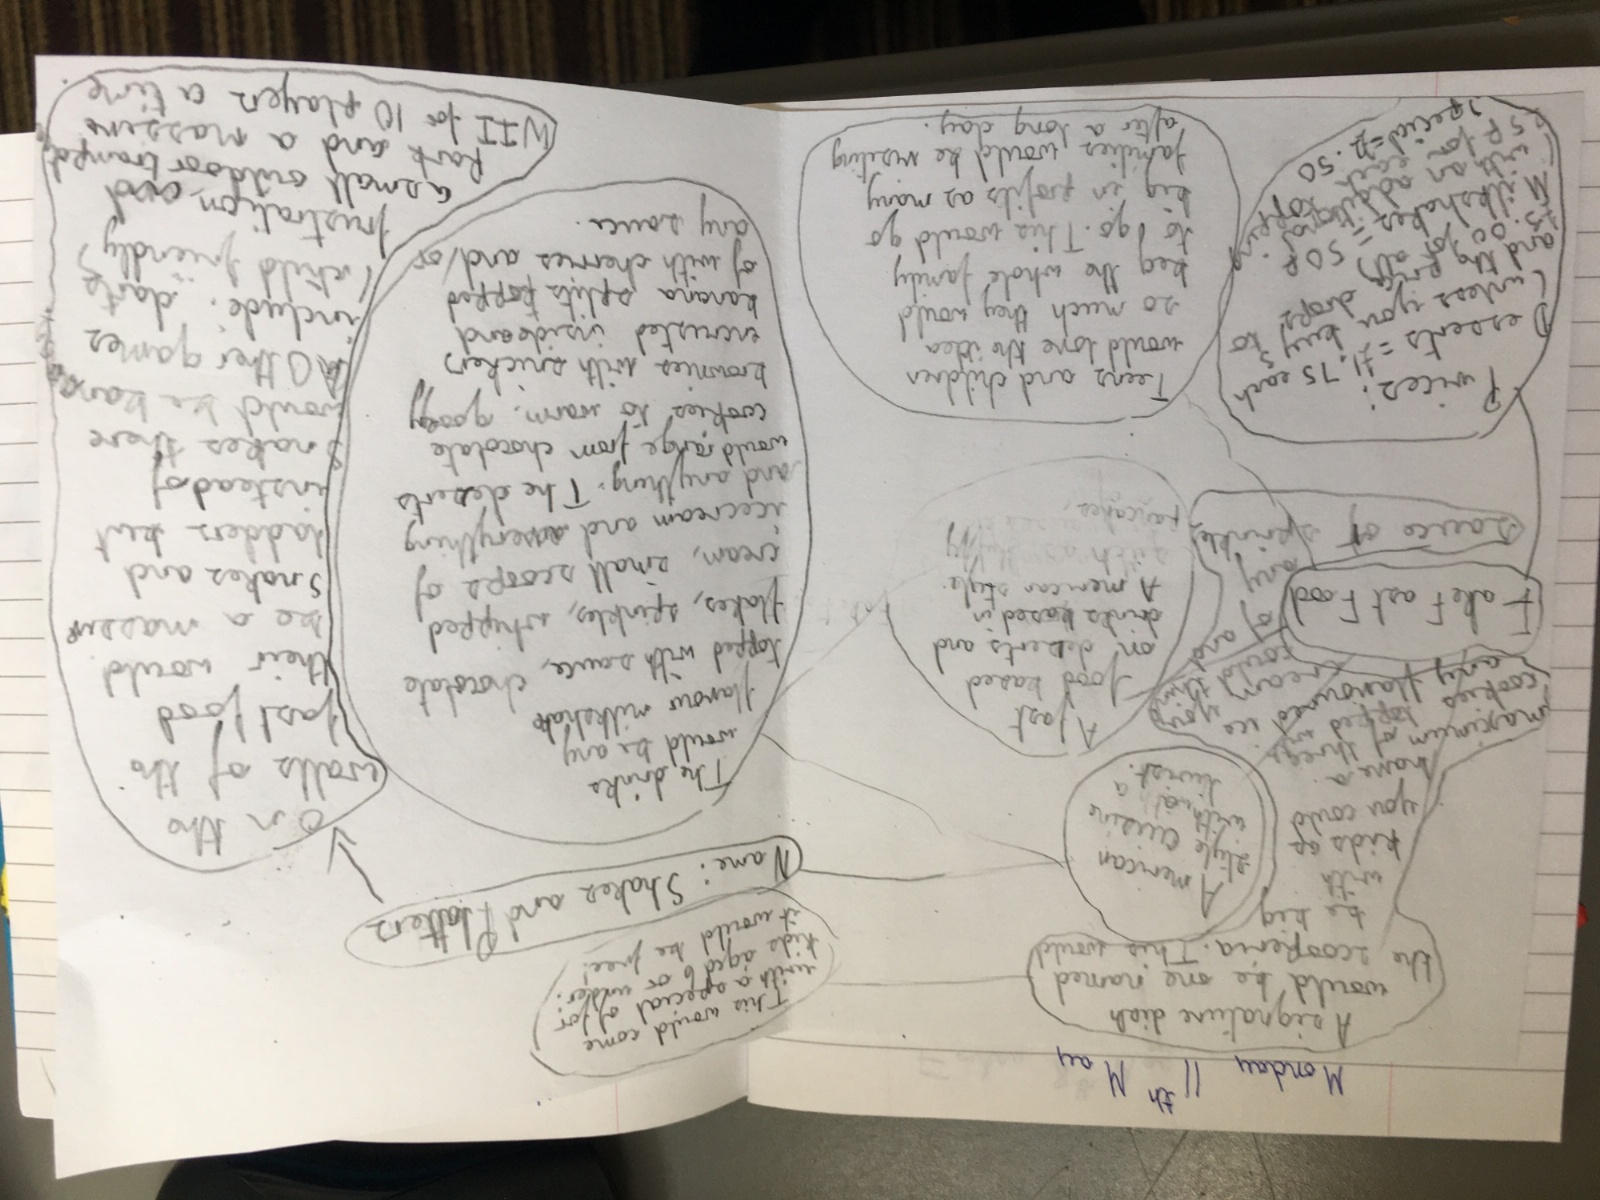 Monday 11th May
A signature dish
would be one named
the scooperia. This would
be big
with
kids as
you could
have a
maximum of three
cookies topped with
any flavoured ice
cream and
any
sauce or sprinkles
Fake Fast Food
American
style cuisine
with a
twist.
A fast
food based
on deserts and
drinks based in
American style
such as fluffy
pancakes,
Prices:
Desserts = £1.75 each
(unless you buy 3 to
£5.00 for all)
Milkshakes = 50p
with an additional
5p for each
special = £2.50
Teens and children
would love the idea
so much they would
beg the whole family
to go. This would go
big in profits as many
families would be visiting
after a long day.
This would come
with a special of for
kids aged 6 or under.
it would be free!
Name: Shakes and Platters
The drinks
would be any
flavour milkshake
topped with sauce, chocolate
flakes, sprinkles, whipped
cream, small scoops of
icecream and everything
and anything. The deserts
would range from chocolate
cookies to warm, gooey
brownies with snickers
encrusted inside and
banana splits topped
of with cherries and/or
any sauce.
On the
walls of the
fast food
their would
be a massive
snakes and
ladders but
instead of
snakes there
would be
Other games
include: darts
(child friendly)
frustration and
a small outdoor trampoline
Park and a massive
WII for 10 players a time.